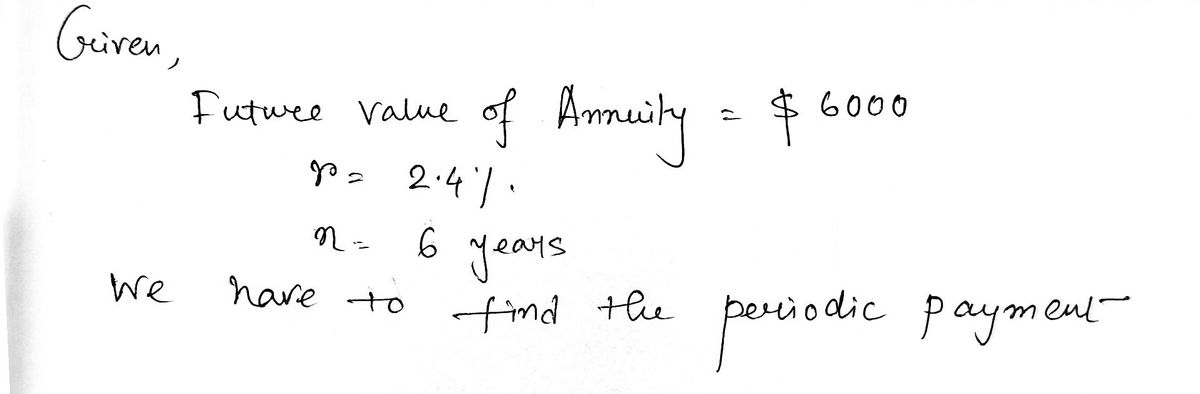 Given,
Future value of Annuity = $ 6000
r = 2.4%.
n = 6 years
We have to find the periodic payment